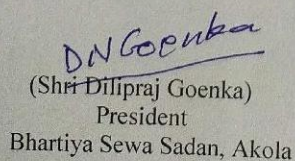 DNGoenka
(Shri Dilipraj Goenka)
President
Bhartiya Sewa Sadan, Akola